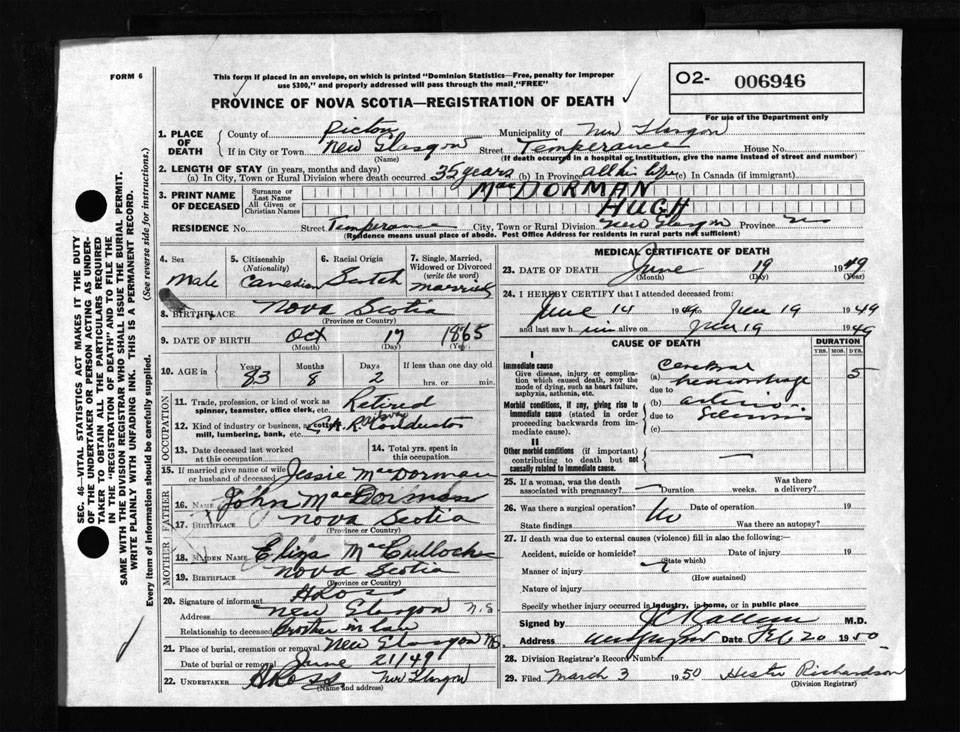 FORM 6
This form if placed in an envelope, on which is printed "Dominion Statistics—Free, penalty for improper
use $300," and properly addressed will pass through the mail "FREE"
PROVINCE OF NOVA SCOTIA—REGISTRATION OF DEATH
O2- 006946
For use of the Department only
1. PLACE OF DEATH
County of Pictou Municipality of New Glasgow
If in City or Town New Glasgow Street Temperance House No.
(Name) (If death occurred in a hospital or institution, give the name instead of street and number)
2. LENGTH OF STAY (in years, months and days)
(a) In City, Town or Rural Division where death occurred 35 years (b) In Province all his life (c) In Canada (if immigrant)
3. PRINT NAME OF DECEASED
Surname or Last Name MacDORMAN
All Given or Christian Names HUGH
RESIDENCE No. Street Temperance City, Town or Rural Division New Glasgow Province NS
(Residence means usual place of abode. Post Office Address for residents in rural parts not sufficient)
4. Sex Male
5. Citizenship (Nationality) Canadian
6. Racial Origin Scotch
7. Single, Married, Widowed or Divorced (write the word) Married
8. BIRTHPLACE Nova Scotia
(Province or Country)
9. DATE OF BIRTH Oct 17 1865
(Month) (Day) (Year)
10. AGE in Years 83 Months 8 Days 2 If less than one day hrs. or min.
OCCUPATION
11. Trade, profession, or kind of work as spinner, teamster, office clerk, etc. Retired
12. Kind of industry or business, as cotton mill, lumbering, bank, etc. Conductor
13. Date deceased last worked at this occupation
14. Total yrs. spent in this occupation
15. If married give name of wife or husband of deceased Jessie MacDorman
FATHER
16. Name John MacDorman
17. Birthplace Nova Scotia
(Province or Country)
MOTHER
18. Maiden Name Eliza MacCulloch
19. Birthplace Nova Scotia
(Province or Country)
20. Signature of informant A Ross
Address New Glasgow N.S
Relationship to deceased Brother in law
21. Place of burial, cremation or removal New Glasgow NS
Date of burial or removal June 21/49
22. UNDERTAKER A Ross New Glasgow
(Name and address)
MEDICAL CERTIFICATE OF DEATH
23. DATE OF DEATH June 19 1949
(Month) (Day) (Year)
24. I HEREBY CERTIFY that I attended deceased from:
June 14 1949 to June 19 1949
and last saw him alive on June 19 1949
CAUSE OF DEATH
DURATION
YRS. MOS. DYS.
I
Immediate cause
Give disease, injury or complication which caused death, NOT the mode of dying, such as heart failure, asphyxia, asthenia, etc.
(a) Cerebral hemorrhage 5
due to
Morbid conditions, if any, giving rise to immediate cause (stated in order proceeding backwards from immediate cause).
(b) arterio
due to Sclerosis
(c)
II
Other morbid conditions (if important) contributing to death but not causally related to immediate cause.
25. If a woman, was the death associated with pregnancy? Duration weeks. Was there a delivery?
26. Was there a surgical operation? No Date of operation 19
State findings Was there an autopsy?
27. If death was due to external causes (violence) fill in also the following:—
Accident, suicide or homicide? Date of injury 19
(State which)
Manner of injury
(How sustained)
Nature of injury
Specify whether injury occurred in industry, in home, or in public place
Signed by M.D.
Address New Glasgow Date Feb 20 1950
28. Division Registrar's Record Number
29. Filed March 3 1950 Hester Richardson
(Division Registrar)
SEC. 46—VITAL STATISTICS ACT MAKES IT THE DUTY
OF THE UNDERTAKER OR PERSON ACTING AS UNDER-
TAKER TO OBTAIN ALL THE PARTICULARS REQUIRED
IN THE "REGISTRATION OF DEATH" AND TO FILE THE
SAME WITH THE DIVISION REGISTRAR WHO SHALL ISSUE THE BURIAL PERMIT.
WRITE PLAINLY WITH UNFADING INK. THIS IS A PERMANENT RECORD.
Every item of information should be carefully supplied. (See reverse side for instructions.)